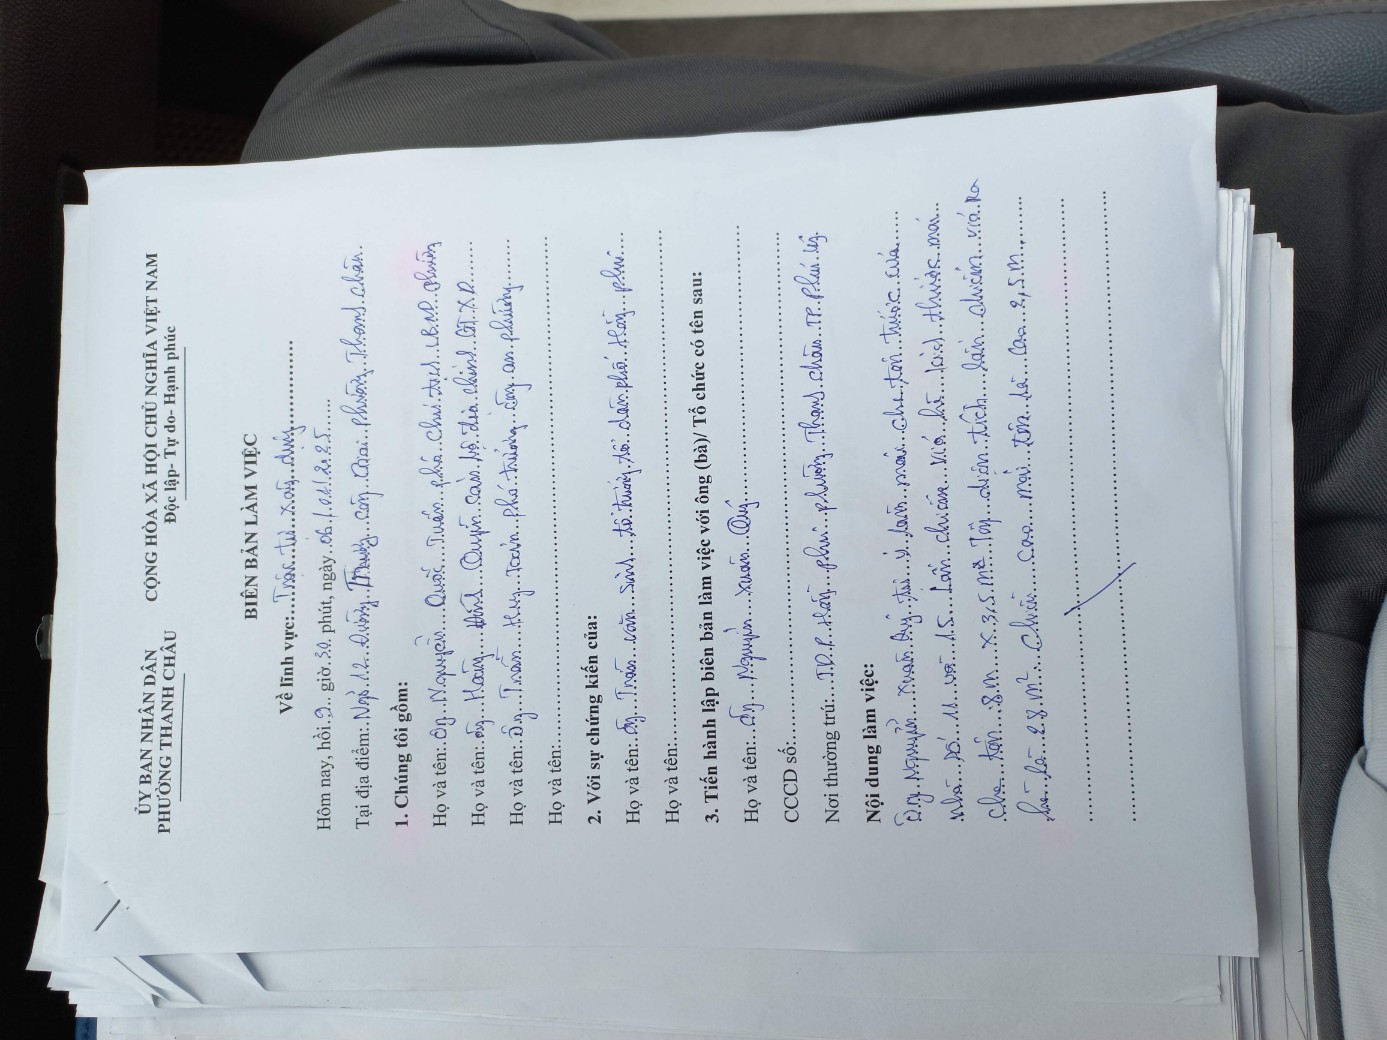 ỦY BAN NHÂN DÂN
PHƯỜNG THANH CHÂU
CỘNG HÒA XÃ HỘI CHỦ NGHĨA VIỆT NAM
Độc lập- Tự do- Hạnh phúc
BIÊN BẢN LÀM VIỆC
Về lĩnh vực: Trật tự xây dựng
Hôm nay, hồi 9 giờ 30 phút, ngày 06/01/2025
Tại địa điểm: Ngõ 12 Đường Trương Công Giai phường Thanh Châu
1. Chúng tôi gồm:
Họ và tên: Ông Nguyễn Quốc Tuấn phó chủ tịch UBND phường
Họ và tên: Ông Hoàng Đình Quyến cán bộ địa chính GTXD
Họ và tên: Ông Trần Huy Toản phó trưởng công an phường
Họ và tên:
2. Với sự chứng kiến của:
Họ và tên: Ông Trần Văn Sinh tổ trưởng tổ dân phố Hồng phú
Họ và tên:
3. Tiến hành lập biên bản làm việc với ông (bà)/ Tổ chức có tên sau:
Họ và tên: Ông Nguyễn Xuân Quý
CCCD số:
Nơi thường trú: T.D.P Hồng phú phường Thanh Châu TP Phủ Lý
Nội dung làm việc:
Ông Nguyễn Xuân Quý tự ý làm mái che tôn trước cửa
nhà số 11 và 15 Lấn chiếm vỉa hè kích thước mái
che tôn 8m x 3,5m diện tích lấn chiếm vỉa
hè là 28m² Chiều cao mái tôn là cao 2,5m.